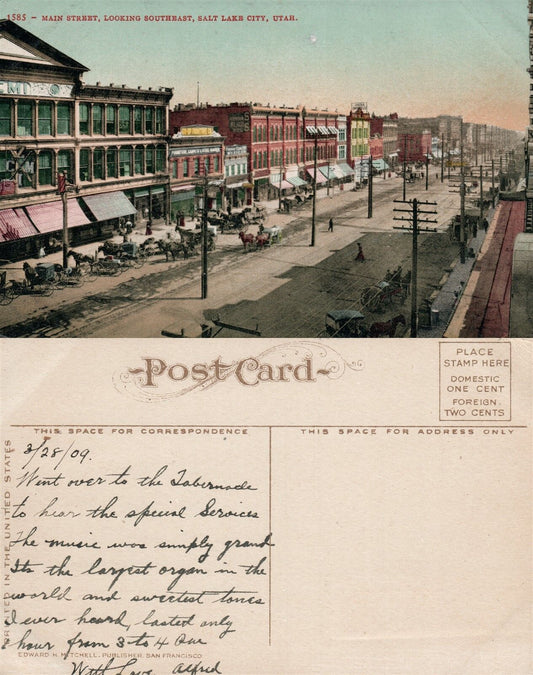 1585 - MAIN STREET, LOOKING SOUTHEAST, SALT LAKE CITY, UTAH.
POST CARD
PLACE
STAMP HERE
DOMESTIC
ONE CENT
FOREIGN.
TWO CENTS
THIS SPACE FOR CORRESPONDENCE
THIS SPACE FOR ADDRESS ONLY
PRINTED IN THE UNITED STATES
3/28/09.
Went over to the Tabernacle
to hear the special Services
The music was simply grand
Its the largest organ in the
world and sweetest tones
I ever heard, lasted only
1 hour from 3 to 4
EDWARD H. MITCHELL, PUBLISHER, SAN FRANCISCO
With Love Alfred